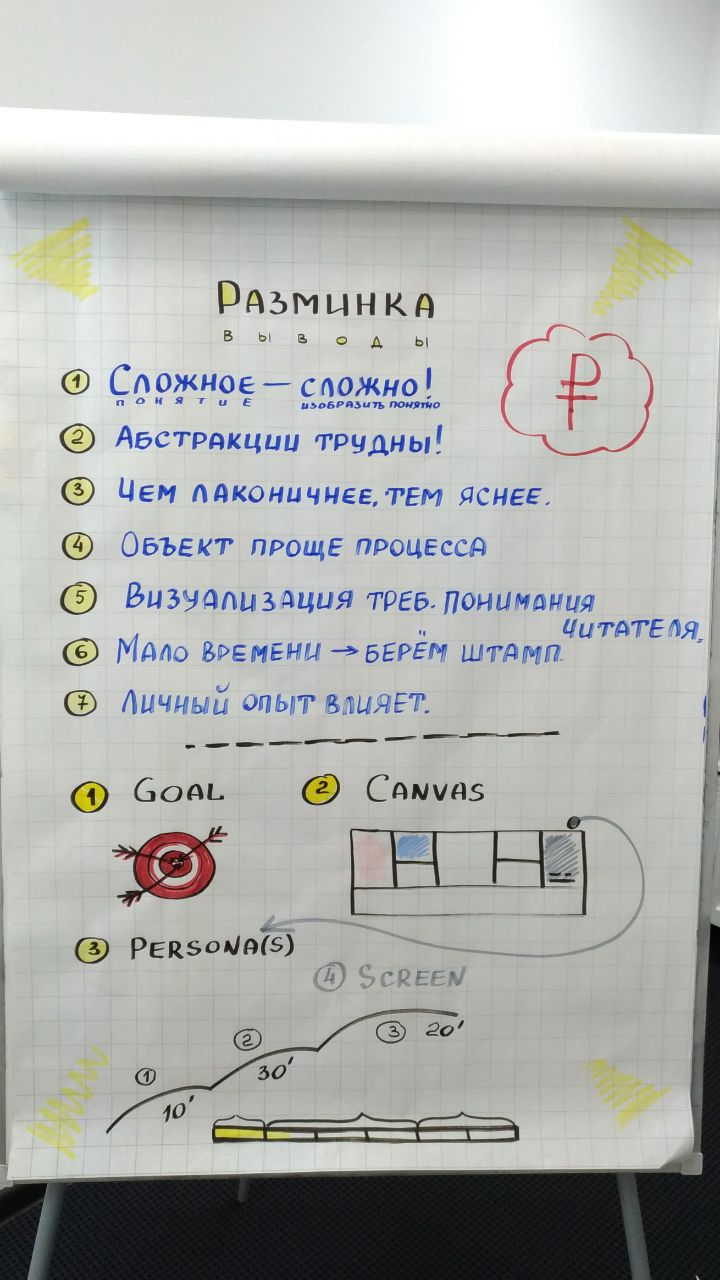 РАЗМИНКА
ВЫВОДЫ
₽
1 СЛОЖНОЕ — СЛОЖНО!
ПОНЯТИЕ ИЗОБРАЗИТЬ ПОНЯТНО
2 АБСТРАКЦИИ ТРУДНЫ!
3 ЧЕМ ЛАКОНИЧНЕЕ, ТЕМ ЯСНЕЕ.
4 ОБЪЕКТ ПРОЩЕ ПРОЦЕССА
5 ВИЗУАЛИЗАЦИЯ ТРЕБ. ПОНИМАНИЯ
ЧИТАТЕЛЯ.
6 МАЛО ВРЕМЕНИ → БЕРЁМ ШТАМП.
7 ЛИЧНЫЙ ОПЫТ ВЛИЯЕТ.
1 GOAL 2 CANVAS
3 PERSONA(S)
4 SCREEN
1 10' 2 30' 3 20'